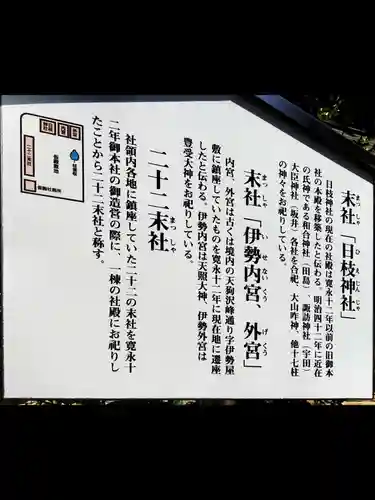 末社「日枝神社」
まっしゃ
ひえじんじゃ
日枝神社の現在の社殿は寛永十二年以前の旧御本
社の本殿を移築したと伝わる。明治四十二年に近在
の氏神である和合神社(田島)、諏訪神社(宇田)
大臣神社(坂井)各社を合祀、大山咋神、他十七柱
の神々をお祀りしている。
末社「伊勢内宮、外宮」
まっしゃ
いせないくう
げくう
内宮、外宮は古くは境内の天狗沢峰通り字伊勢屋
敷に鎮座していたものを寛永十二年に現在地に遷座
したと伝わる。伊勢内宮は天照大神、伊勢外宮は
豊受大神をお祀りしている。
二十二末社
まっしゃ
社領内各地に鎮座していた二十二の末社を寛永十
二年御本社の御造営の際に、一棟の社殿にお祀りし
たことから二十二末社と称す。